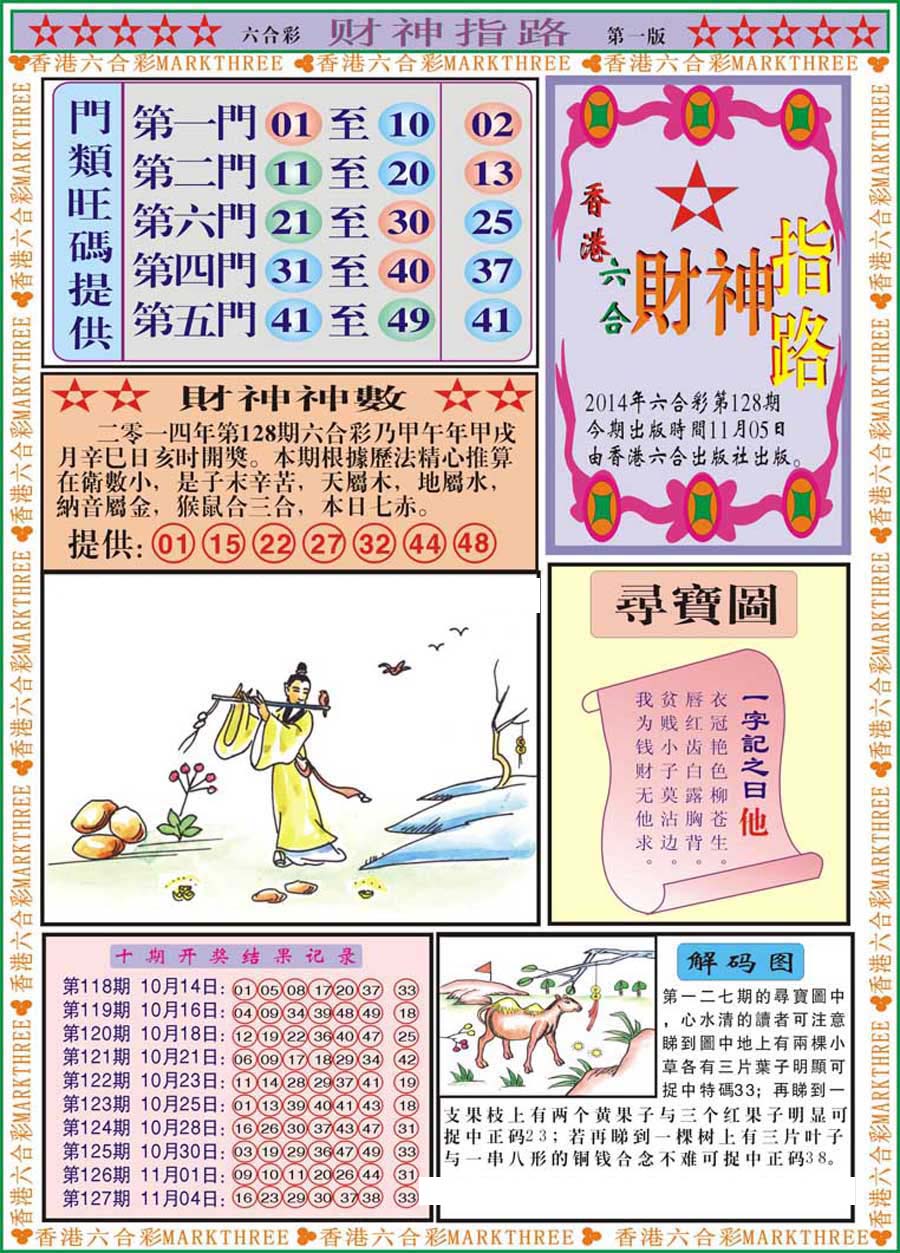 六合彩 财神指路 第一版
香港六合彩MARKTHREE 香港六合彩MARKTHREE 香港六合彩MARKTHREE
門類旺碼提供
第一門 01 至 10 02
第二門 11 至 20 13
第六門 21 至 30 25
第四門 31 至 40 37
第五門 41 至 49 41
香港六合
財神
指路
2014年六合彩第128期
今期出版時間11月05日
由香港六合出版社出版。
財神神數
二零一四年第128期六合彩乃甲午年甲戌
月辛巳日亥时開獎。本期根據歷法精心推算
在衛數小，是子末辛苦，天屬木，地屬水，
納音屬金，猴鼠合三合，本日七赤。
提供: 01 15 22 27 32 44 48
尋寶圖
一字記之曰 他
衣冠艳色柳苍生
唇红齿白露胸背。
贫贱小子莫沾边。
我为钱财无他求。
十期开奖结果记录
第118期 10月14日: 01 05 08 17 20 37 33
第119期 10月16日: 04 09 34 39 48 49 18
第120期 10月18日: 12 19 22 36 40 47 25
第121期 10月21日: 06 09 17 18 29 34 42
第122期 10月23日: 11 14 28 29 37 41 19
第123期 10月25日: 01 13 39 40 41 43 18
第124期 10月28日: 16 26 30 37 43 47 31
第125期 10月30日: 03 19 29 36 47 49 33
第126期 11月01日: 09 10 11 20 26 44 31
第127期 11月04日: 16 23 29 30 37 38 33
解码图
第一二七期的尋寶圖中
，心水清的讀者可注意
睇到圖中地上有兩棵小
草各有三片葉子明顯可
捉中特碼33；再睇到一
支果枝上有两个黄果子与三个红果子明显可
捉中正码23；若再睇到一棵树上有三片叶子
与一串八形的铜钱合念不难可捉中正码38。
香港六合彩MARKTHREE 香港六合彩MARKTHREE 香港六合彩MARKTHREE
香港六合彩MARKTHREE 香港六合彩MARKTHREE 香港六合彩MARKTHREE 香港六合彩MARKTHREE 香港六合彩MARKTHREE
香港六合彩MARKTHREE 香港六合彩MARKTHREE 香港六合彩MARKTHREE 香港六合彩MARKTHREE 香港六合彩MARKTHREE